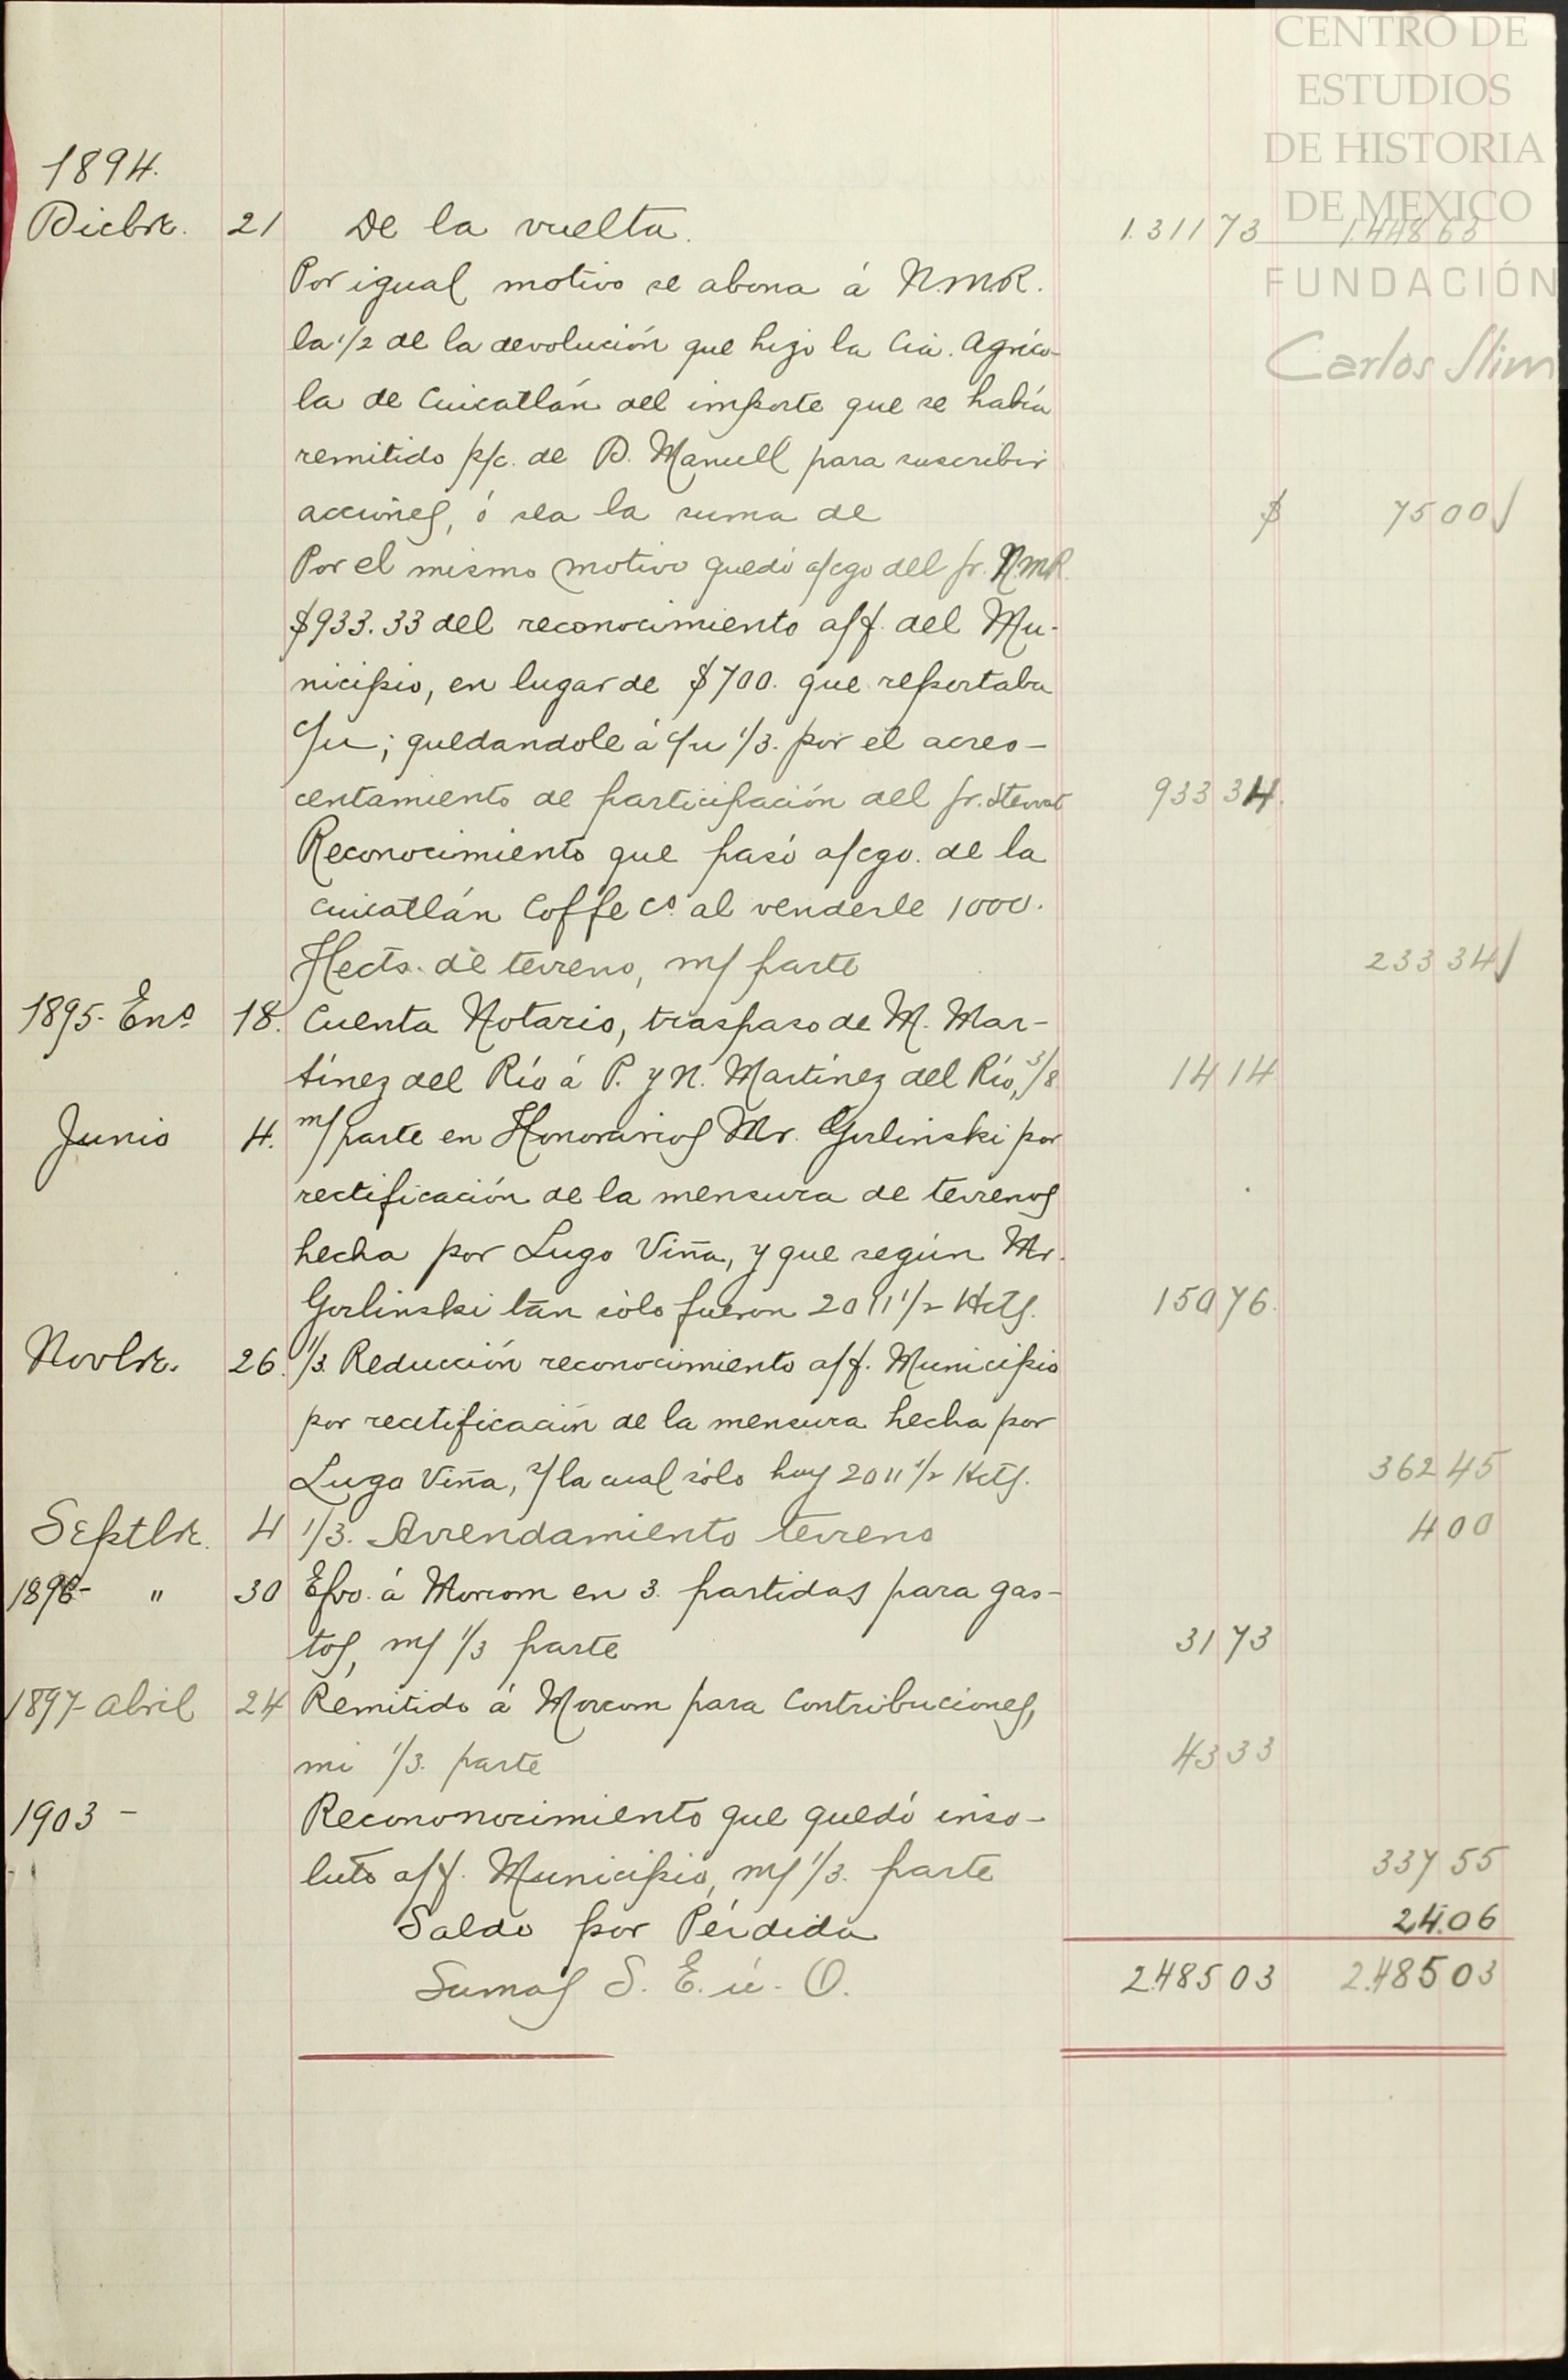 CENTRO DE
ESTUDIOS
DE HISTORIA
DE MEXICO
FUNDACIÓN
Carlos Slim
1894.
Dicbre. 21 De la vuelta. 1.311 73 1.448 63
Por igual motivo se abona á N.M.R.
la 1/2 de la devolución que hizo la Cia. Agríco-
la de Cuicatlán del importe que se había
remitido p/c. de D. Manuell para suscribir
acciones, ó sea la suma de $ 75 00
Por el mismo motivo quedó a/cgo del Sr. N.M.R.
$933.33 del reconocimiento a/f. del Mu-
nicipio, en lugar de $700. que reportaba
c/u; quedandole á c/u 1/3. por el acres-
centamiento de participación del Sr. Stewat 933 34.
Reconocimiento que pasó a/cgo. de la
Cuicatlán Coffe Co. al venderle 1000.
Hects. de terreno, m/ parte 233 34
1895- Eno. 18. Cuenta Notario, traspaso de M. Mar-
tínez del Río á P. y N. Martínez del Río, 3/8 14 14
Junio 4. m/ parte en Honorarios Mr. Gorlinski por
rectificación de la mensura de terrenos
hecha por Lugo Viña, y que según Mr.
Gorlinski tan sólo fueron 2011 1/2 Hcts. 150 76
Novbre. 26. 1/3. Reducción reconocimiento a/f. Municipio
por rectificación de la mensura hecha por
Lugo Viña, s/ la cual sólo hay 2011 1/2 Hcts. 362 45
Septbre. 4 1/3. Arrendamiento terreno 4 00
1896- " 30 Efvo. á Morcom en 3. partidas para gas-
tos, m/ 1/3 parte 31 73
1897- Abril 24 Remitido á Morcom para Contribuciones,
mi 1/3. parte 43 33
1903 - Recononocimiento que quedó inso-
luto a/f. Municipio, m/ 1/3. parte 337 55
Saldo por Pérdida 24.06
Sumas S. E. ú. O. 2.485 03 2.485 03